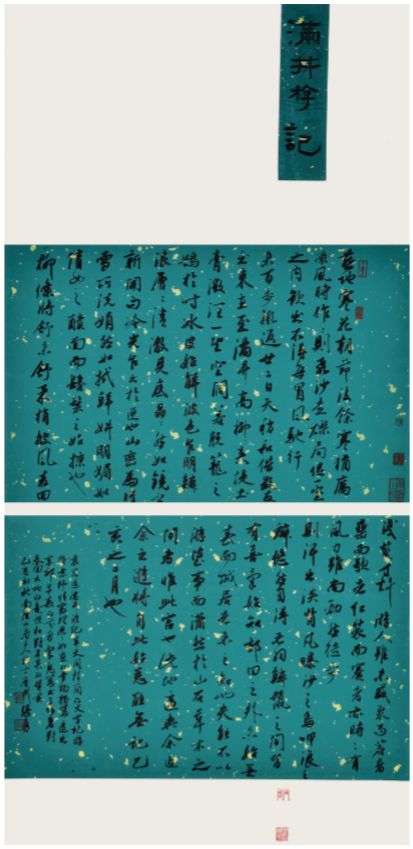 滿井遊記
燕地寒花朝節後餘寒猶厲
凍風時作作則飛沙走礫局促一室
之内欲出不得每冒風馳行
未百步輒返廿二日天稍和偕數友
出東直至滿井高柳夾堤土
膏微潤一望空闊若脱籠之
鵠於時冰皮始解波色乍明鱗
浪層層清澈見底晶晶然如鏡之
新開而冷光之乍出於匣也山巒為晴
雪所洗娟然如拭鮮妍明媚如
倩女之靧面而髻鬟之始掠也
柳條將舒未舒柔梢披風麥田
淺鬣寸許游人雖未盛泉而茗者
罍而歌者紅裝而蹇者亦時時有
風力雖尚勁然徒步
則汗出浹背凡曝沙之鳥呷浪之
鱗悠然自得毛羽鱗鬣之間皆
有喜氣始知郊田之外未始無
春而城居者未之知也夫能不以
游墮事而瀟然於山石草木之
間者惟此官也此地適與余近
余之遊將自此始惡能無記己
亥之二月也